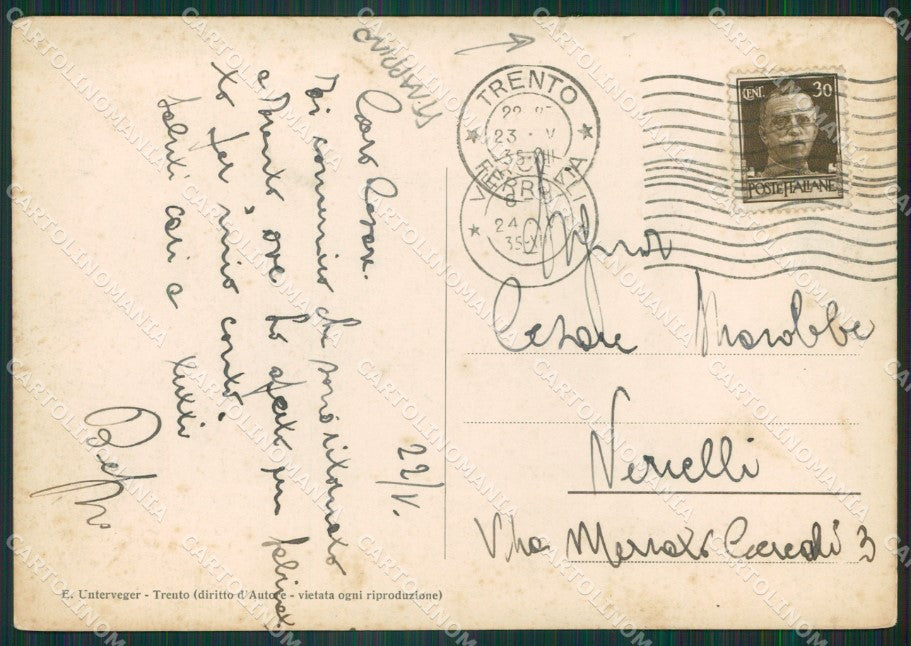 Caro Cesare.
Ti comunico che sono ritornato
a Trento ove ho fatto un
per mio conto!
Saluti cari a tutti
Beppe
22/V.
TRENTO
23 V
FERROVIA
24
35
CENT. 30
POSTE ITALIANE
Signor
Cesare Marobbe
Vercelli
Via Mercato Cavalli 3
E. Unterveger - Trento (diritto d'Autore - vietata ogni riproduzione)
CARTOLINOMANIA